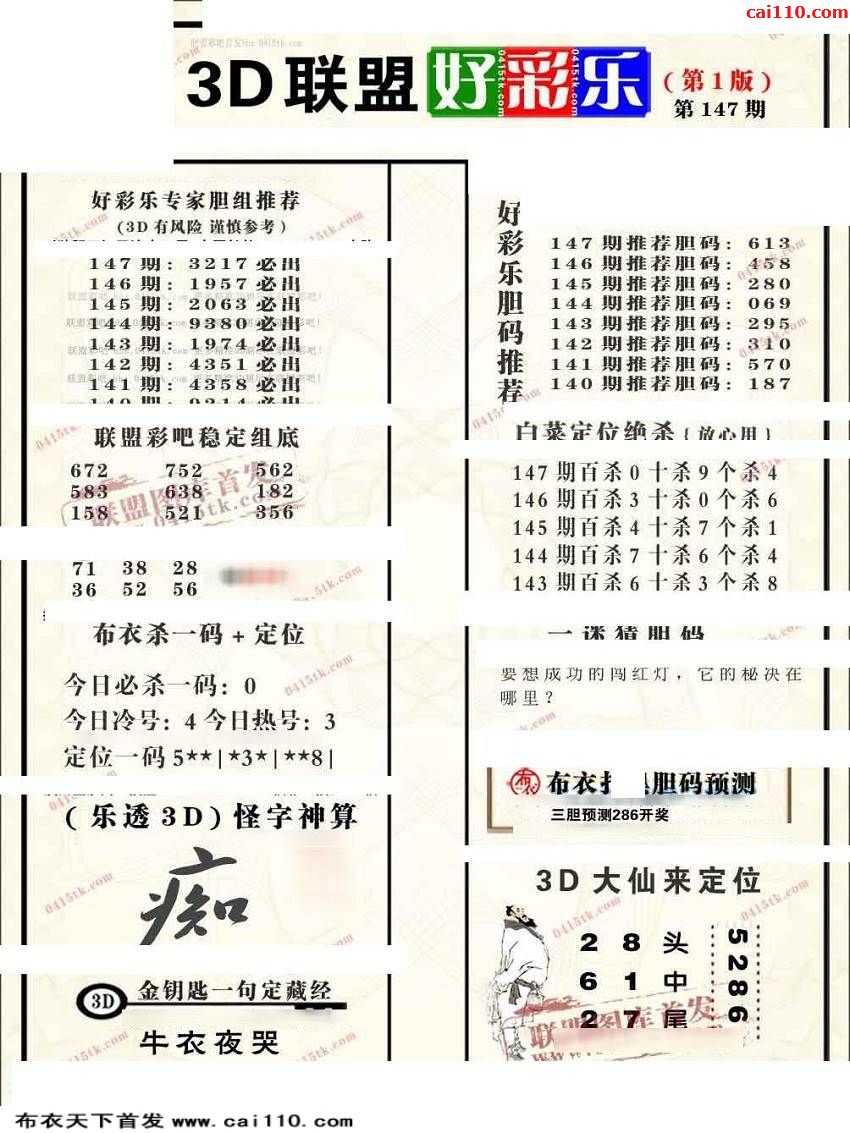 cai110.com
3D联盟好彩乐
(第1版)
第147期
好彩乐专家胆组推荐
(3D有风险 谨慎参考)
147期:3217必出
146期:1957必出
145期:2063必出
144期:9380必出
143期:1974必出
142期:4351必出
141期:4358必出
联盟彩吧稳定组底
672 752 562
583 638 182
158 521 356
71 38 28
36 52 56
布衣杀一码+定位
今日必杀一码:0
今日冷号:4 今日热号:3
定位一码5**|*3*|**8|
(乐透3D)怪字神算
痴
3D 金钥匙一句定藏经
牛衣夜哭
好彩乐胆码推荐
147期推荐胆码:613
146期推荐胆码:458
145期推荐胆码:280
144期推荐胆码:069
143期推荐胆码:295
142期推荐胆码:310
141期推荐胆码:570
140期推荐胆码:187
白菜定位绝杀{放心用}
147期百杀0十杀9个杀4
146期百杀3十杀0个杀6
145期百杀4十杀7个杀1
144期百杀7十杀6个杀4
143期百杀6十杀3个杀8
一迷猜胆码
要想成功的闯红灯,它的秘决在
哪里?
布衣 胆码预测
三胆预测286开奖
3D大仙来定位
2 8 头
6 1 中
2 7 尾
5286
联盟图库首发
0415tk.com
布衣天下首发 www.cai110.com